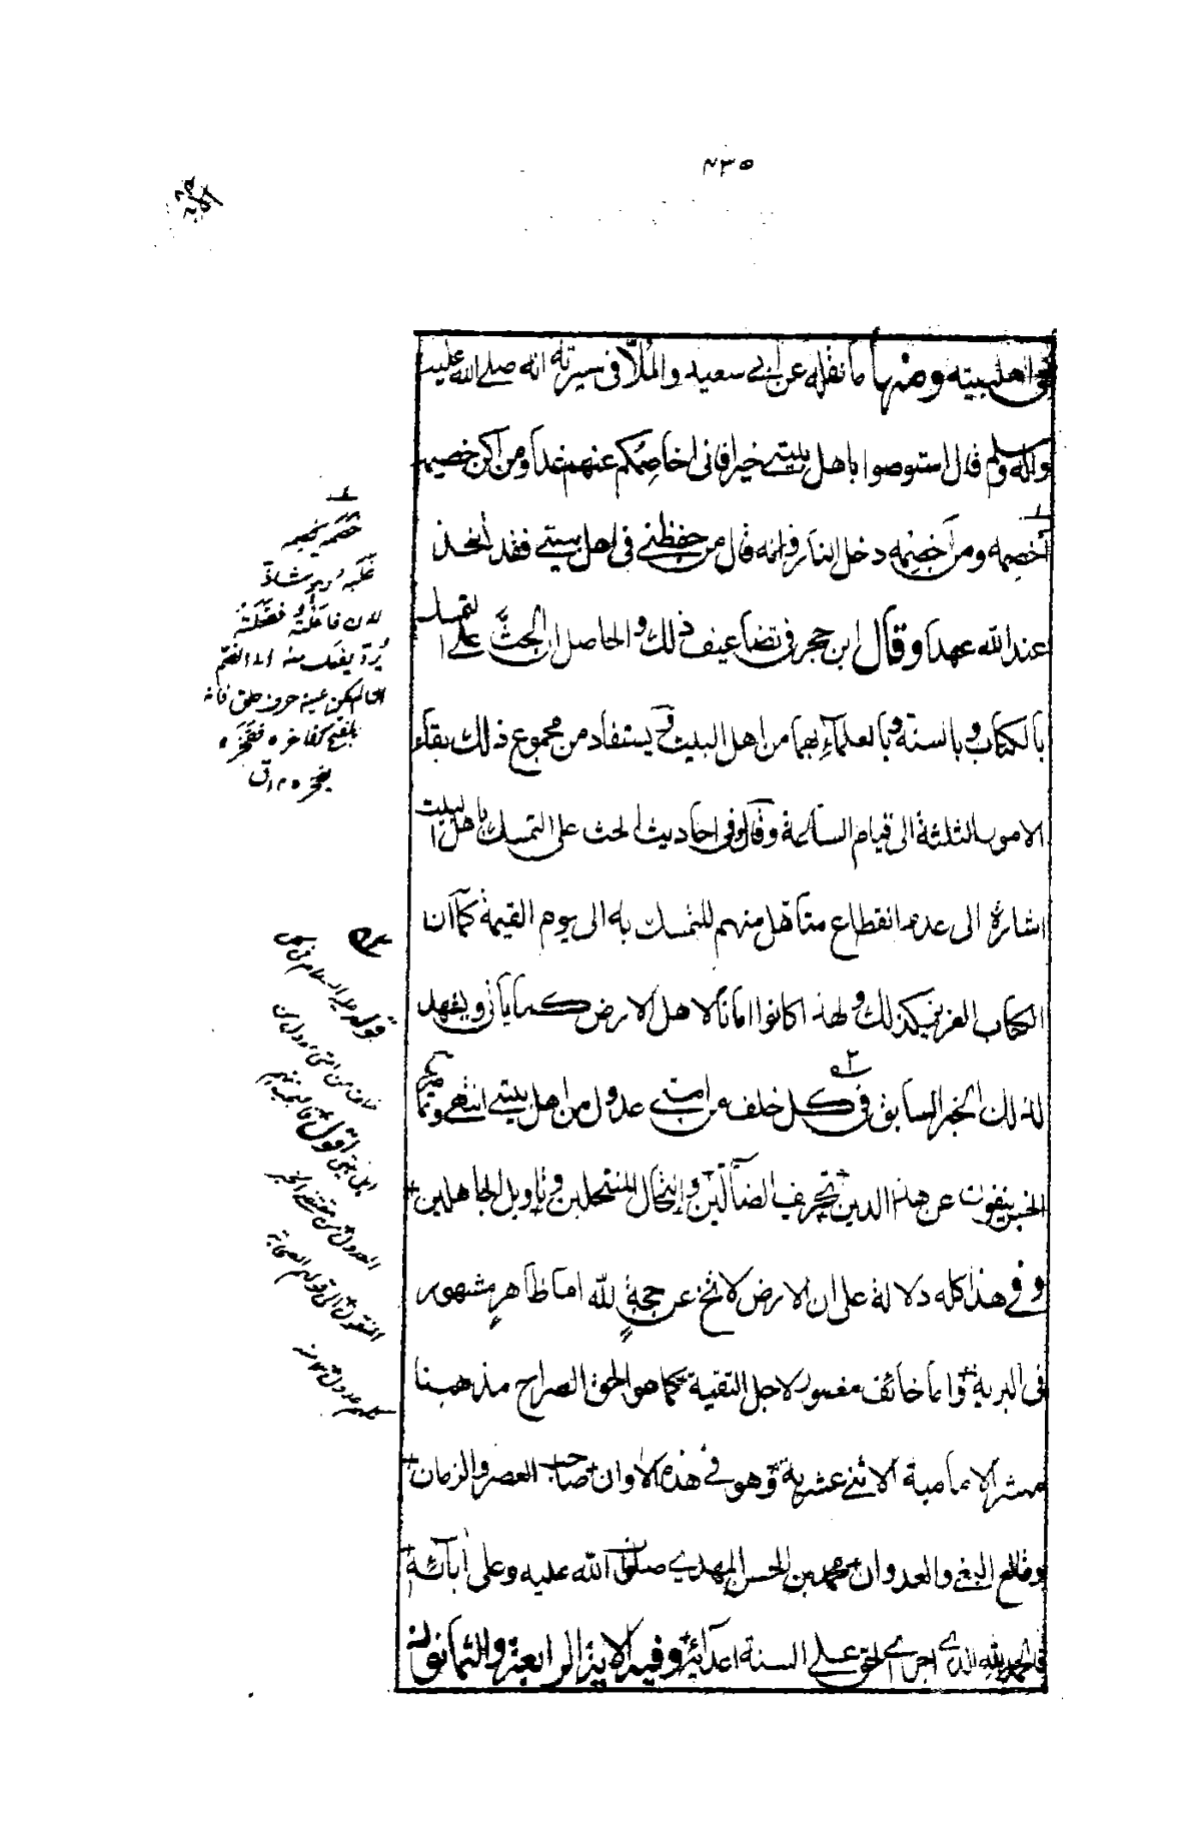 ٤٣٥
الآية
في اهل بيته ومنها ما نقله عن ابي سعيد والملّا في سيرته انه صلى الله عليه
وآله وسلم قال استوصوا باهل بيتي خيرا فاني اخاصمكم عنهم غدا ومن اكن خصيمه
أخصمه ومن أخصمه دخل النار وانه قال من حفظني في اهل بيتي فقد اتخذ
عند الله عهدا وقال ابن حجر في تضاعيف ذلك والحاصل ان الحثّ على التمسك
بالكتاب وبالسنة وبالعلماء بهما من اهل البيت ويستفاد من مجموع ذلك بقاء
الامور الثلثة الى قيام الساعة وقال وفي احاديث الحث على التمسك باهل البيت
اشارة الى عدم انقطاع متأهل منهم للتمسك به الى يوم القيمة كما ان
الكتاب العزيز كذلك ولهذا كانوا امانا لاهل الارض كما يأتي ويشهد
لذلك الخبر السابق في كل خلف من امتي عدول من اهل بيتي انتهى وتمام
الخبر ينفون عن هذا الدين تحريف الضالّين وانتحال المنتحلين وتاويل الجاهلين
وفي هذا كله دلالة على ان الارض لا تخ عن حجة لله اما ظاهر مشهور
في البرية واما خائف مغمور لاجل التقية كما هو الحق الصراح مذهبنا
معشر الامامية الاثني عشرية وهو في هذه الاوان صاحب العصر والزمان
وقالع البغي والعدوان محمد بن الحسن المهدي صلوات الله عليه وعلى آبائه
فالحمد لله الذي اجرى الحق على السنة اعدائه وفيه الآية الرابعة والثمانون
خصمه يخصمه
غلبه وهو شاذ
لان فاعلته ففعلته
يردّ يفعل منه الى الضم
ان لم يكن عينه حرف حلق فانه
بالفتح كفاخره ففخره
يفخره ق
قوله عليه السلام في كل
خلف من امتي عدول من
اهل بيتي اقول
العدول من مقتضى الخبر